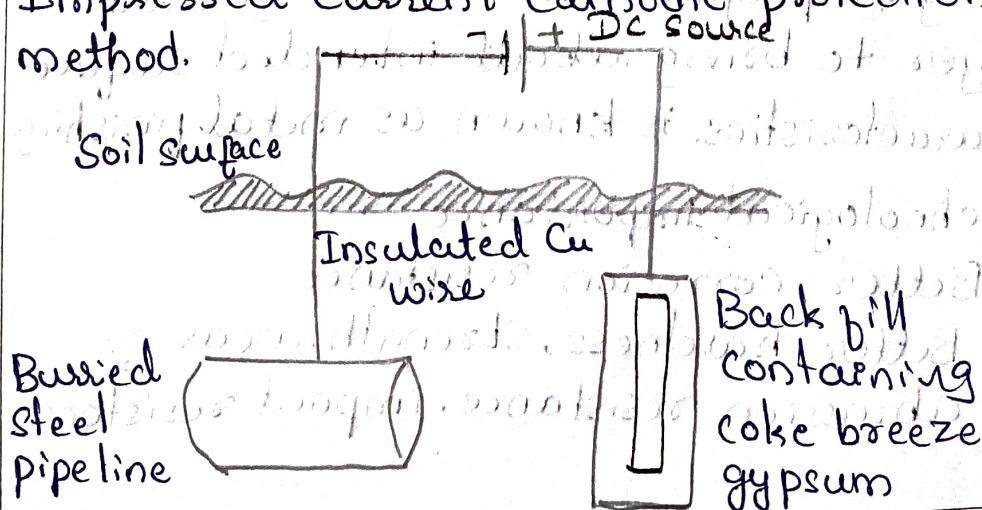 Impressed Current Cathodic protection
method.
- + DC Source
Soil surface
Insulated Cu
wire
Burried
steel
pipeline
Back fill
containing
coke breeze
gypsum